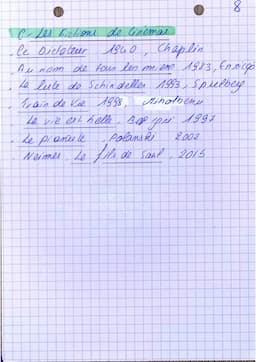 8
C - Les Fictions de Cinémas
- Le Dictateur 1940, Chaplin
- Au nom de tous les miens 1983, Enrico
- La liste de Schindeller 1993, Spielberg
- Train de Vie 1998,
La vie est belle 1997
- Le pianiste Polanski 2002
- Neimes Le fils de Saul 2015